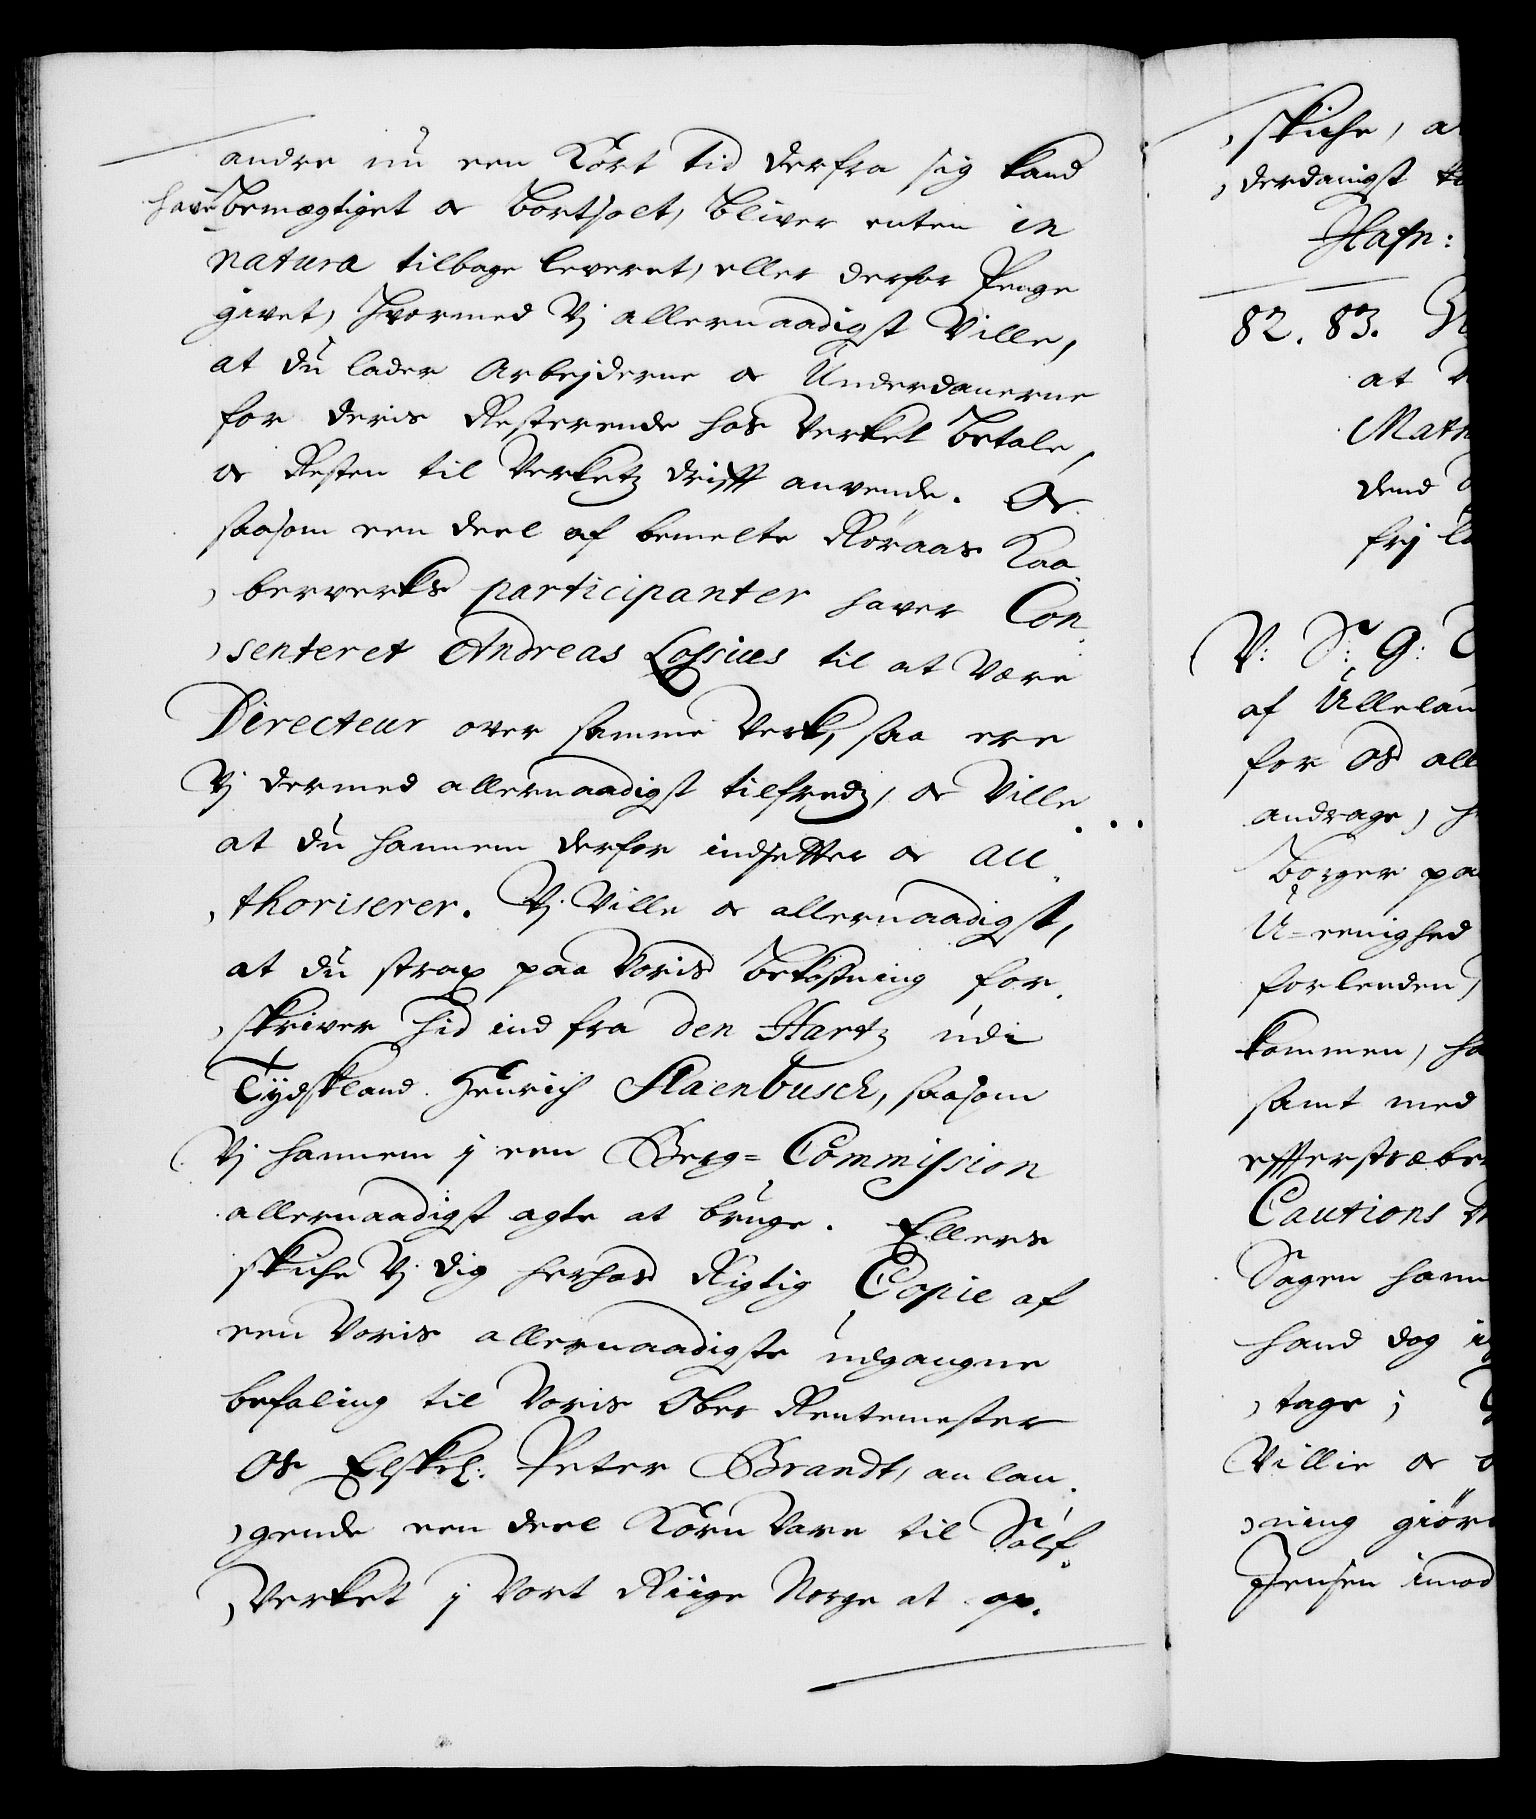 andre nu een Kort Tid derfra sig kand
have bemægtiget og bortsolt, bliver enten in
natura tilbage leveret, eller derfor Penge
givet, hvormed Vj allernaadigst Ville,
at du lader Arbejderne og Underdanerne
for deris Resterende hos Verket betale,
og Resten til Verketz drifft anvende. Og
saasom een deel af bemelte Røraas Kaa-
berverks participanter haver Con-
senteret Andreas Lossius til at Være
Directeur over samme Verk, saa ere
Vj dermed allernaadigst tilfredz, og Ville
at du hannem derfor indsetter og au-
thoriserer. Vj Ville og allernaadigst,
at du strax paa Voris bekostning for-
skriver hid ind fra den Hartz udi
Tydskland Henrich Slaenbusch, saasom
Vj hannem j een Berg=Commission
allernaadigst agte at bruge. Ellers
skicke Vj dig herhos Rigtig Copie af
een Voris allernaadigste udgangne
befaling til Voris Ober Rentemester
Os Elskel: Peter Brandt, anlan-
gende een deel Korn Vare til Sølf-
Verket j Vort Riige Norge at op-
skicke, a
derdanigst
Hafn:
82. 83.
at
dend
frj
V: S: G:
af
for Os all
andrage, h
Borger pa
U-eenighed
forlenden,
kommen, ha
samt med
effterstræbe
Cautions
Sagen hann
hand dog i
tage;
Villie og
ning giør
Jensen imod